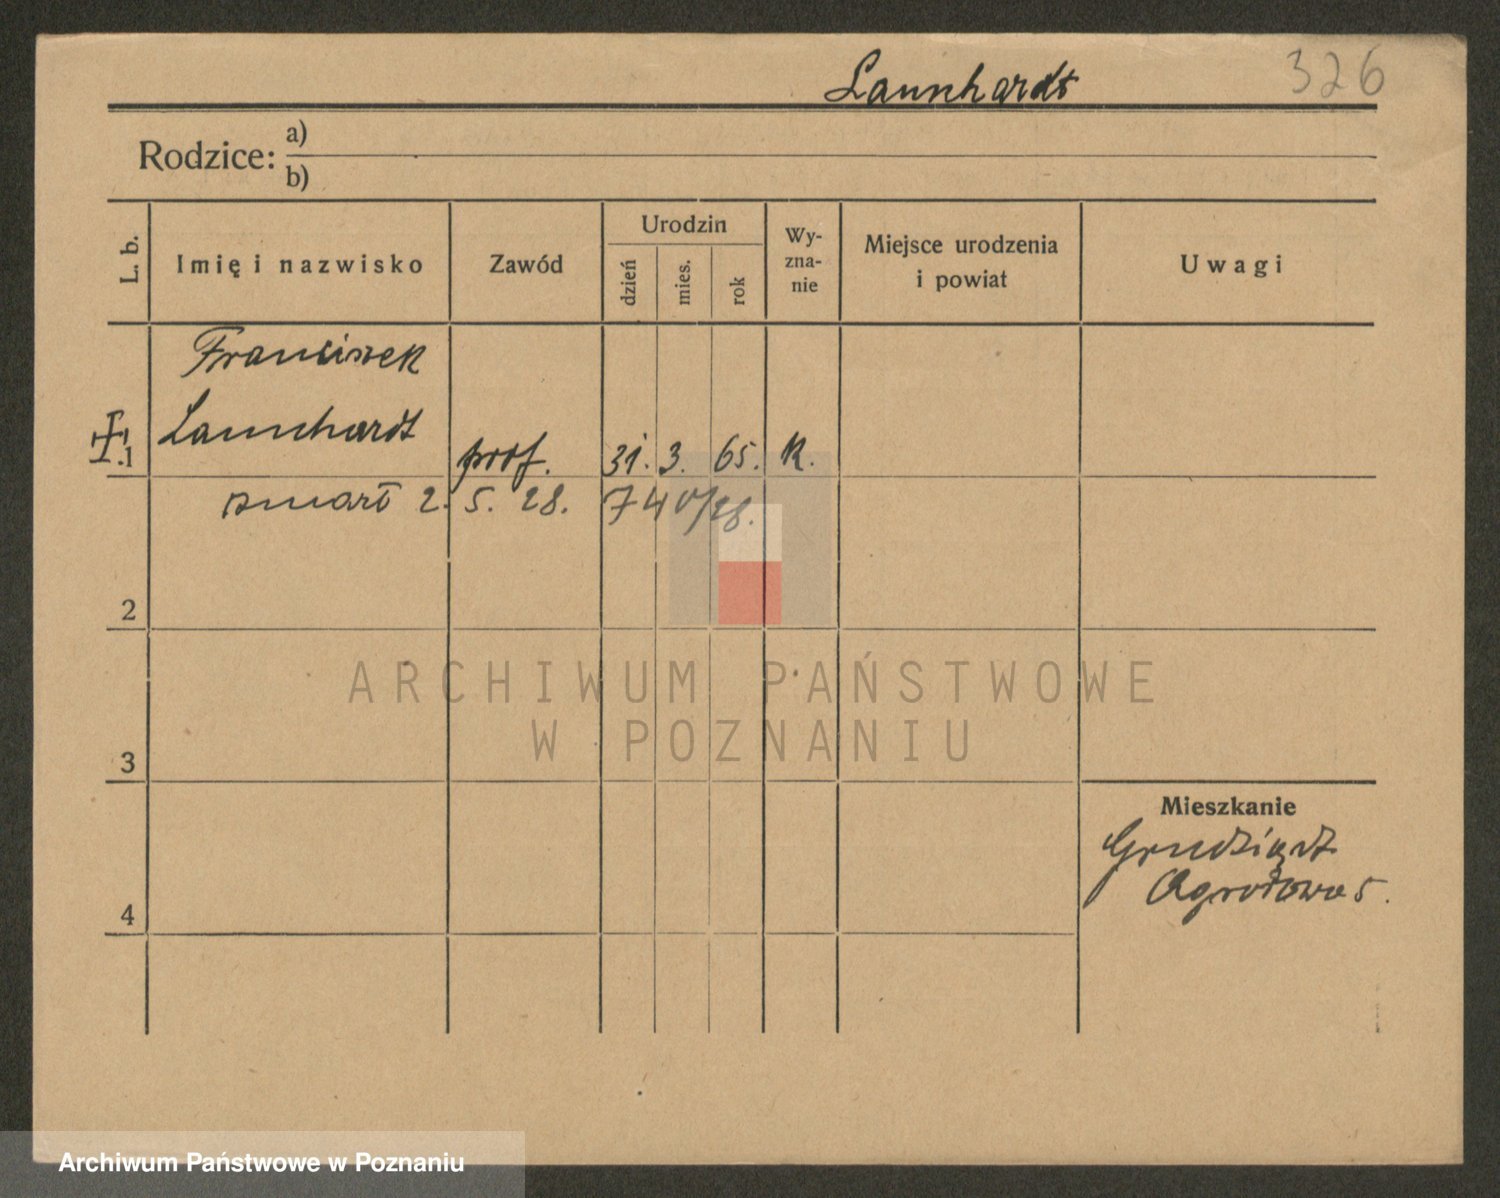 Launhardt 326
Rodzice: a)
b)
L. b. Imię i nazwisko Zawód Urodzin dzień mies. rok Wy-zna-nie Miejsce urodzenia i powiat Uwagi
Franciszek
1 Launhardt prof. 31. 3. 65. K.
zmarł 2. 5. 28. 740/28.
2
3
Mieszkanie
Grudziądz
Ogrodowa 5.
4
ARCHIWUM PAŃSTWOWE
W POZNANIU
Archiwum Państwowe w Poznaniu